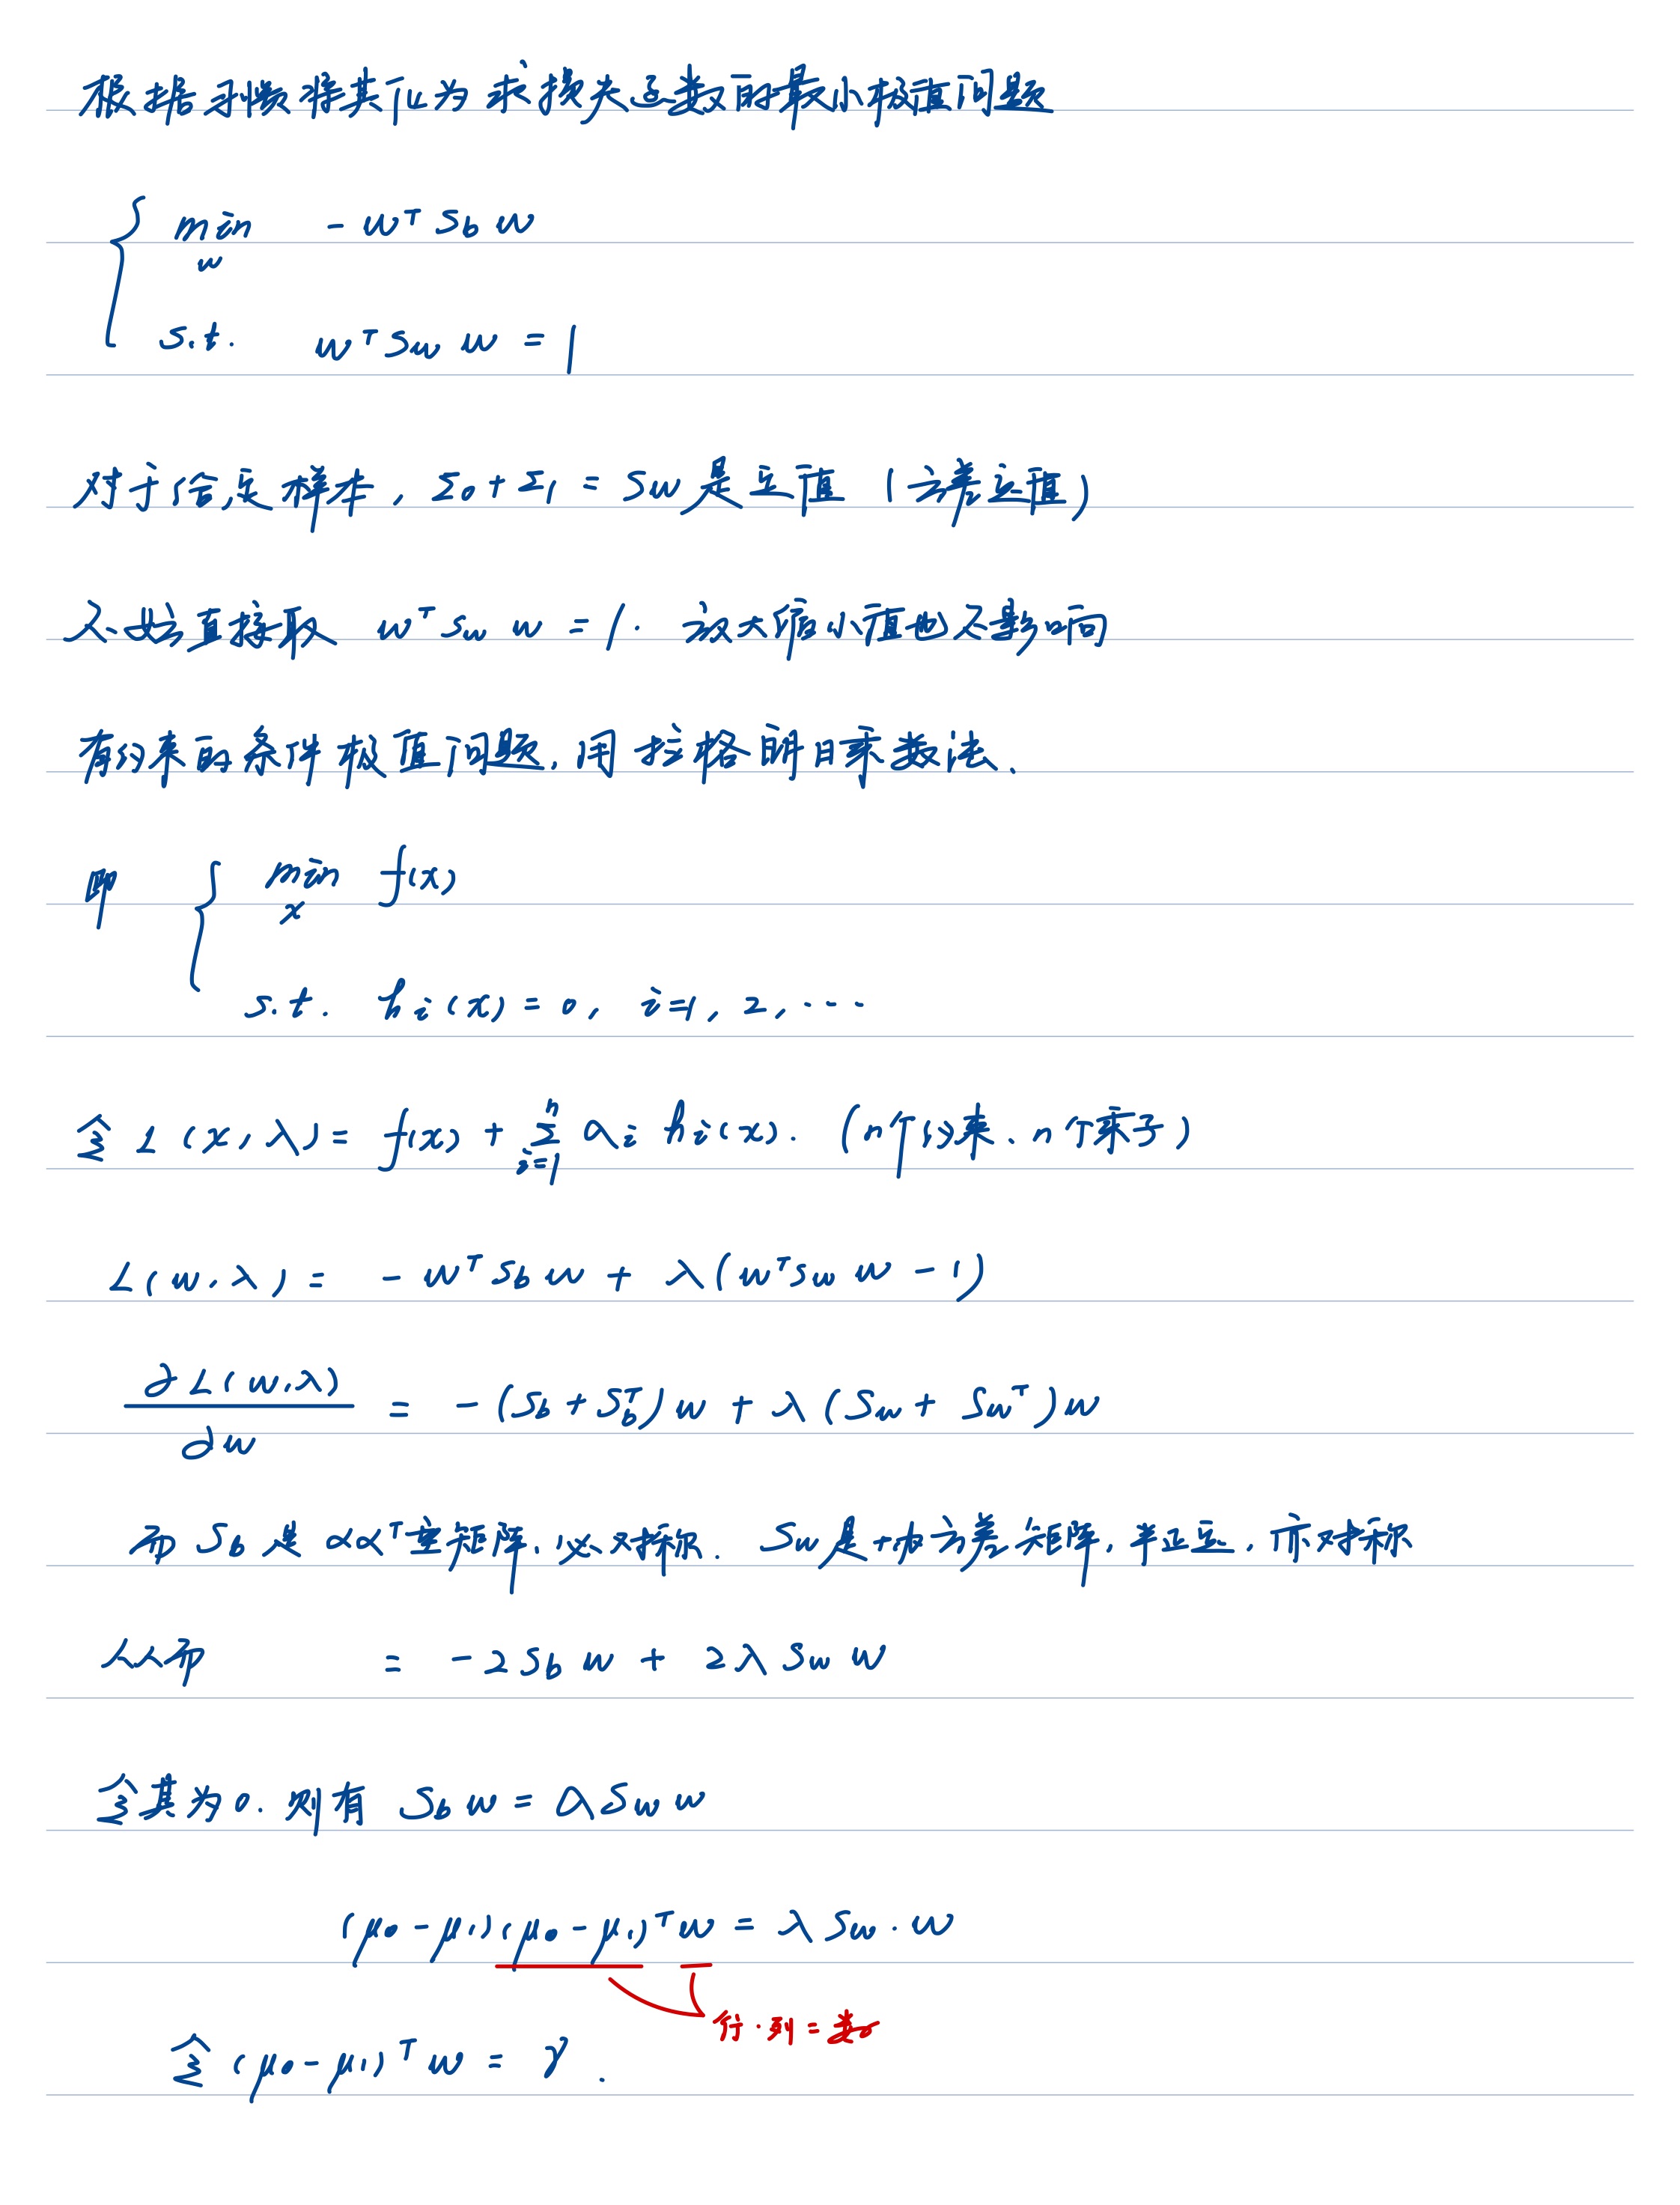 根据习惯将其化为求损失函数的最小极值问题
min -wᵀ S_b w
w
s.t. wᵀ S_w w = 1
对于给定样本, Σ₀ + Σ₁ = S_w 是定值 (方差定值)
不妨直接取 wᵀ S_w w = 1. 放大缩小值也不影响
有约束的条件极值问题, 用拉格朗日乘数法.
即 min f(x)
x
s.t. hᵢ(x) = 0, i=1, 2, ...
令 L(x, λ) = f(x) + Σⁿᵢ₌₁ λᵢ hᵢ(x). (n个约束、n个乘子)
L(w, λ) = -wᵀ S_b w + λ(wᵀ S_w w - 1)
∂L(w,λ)/∂w = -(S_b + S_bᵀ)w + λ(S_w + S_wᵀ)w
而 S_b 是 ααᵀ型矩阵, 必对称. S_w是协方差矩阵, 半正定, 亦对称
从而 = -2 S_b w + 2λ S_w w
令其为0. 则有 S_b w = λ S_w w
(μ₀ - μ₁)(μ₀ - μ₁)ᵀ w = λ S_w · w
行·列=数
令 (μ₀ - μ₁)ᵀ w = γ.